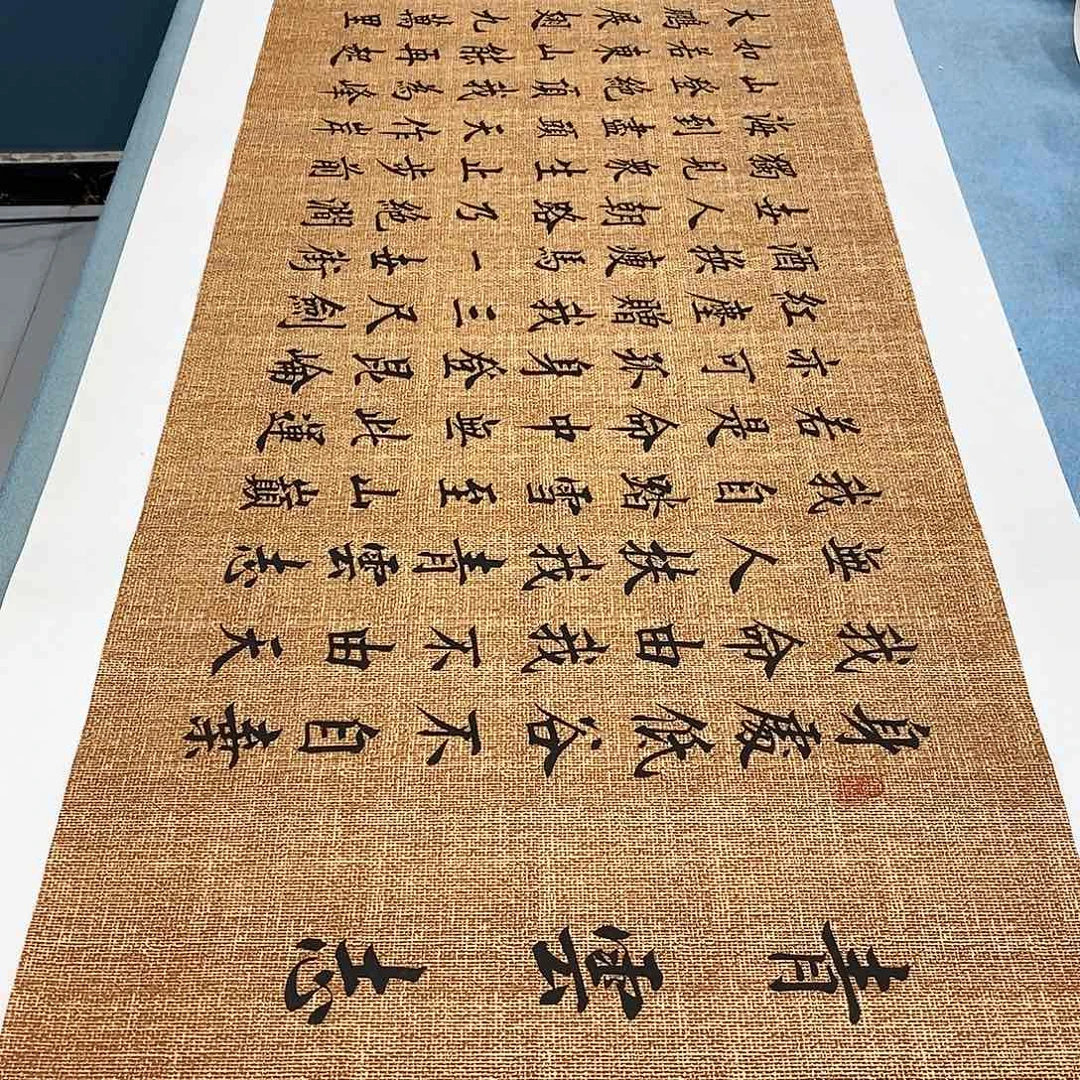 青雲志
身處低谷不自棄
我命由我不由天
無人扶我青雲志
我自踏雪至山巔
若是命中無此運
亦可孤身登昆崙
紅塵贈我三尺劍
酒換瘦馬一世街
世人朝路乃絕澗
獨見眾生止步前
海到盡頭天作岸
山登絕頂我為峰
如若東山能再起
大鵬展翅九萬里